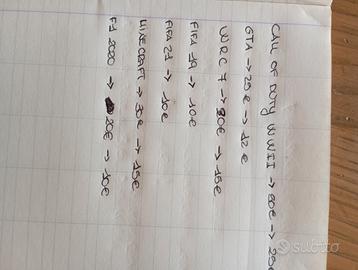 CALL OF DUTY WWII → 60€ → 25€
GTA → 25€ → 12€
WRC 7 → 20€ → 15€
FIFA 19 → 10€
FIFA 21 → 10€
MINECRAFT → 30€ → 15€
F1 2020 → 20€ → 10€
subito